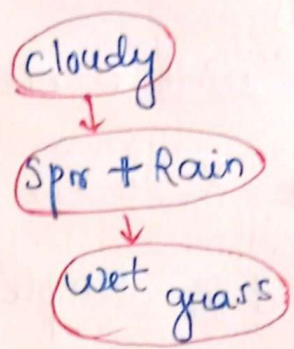 cloudy
Spr + Rain
wet grass